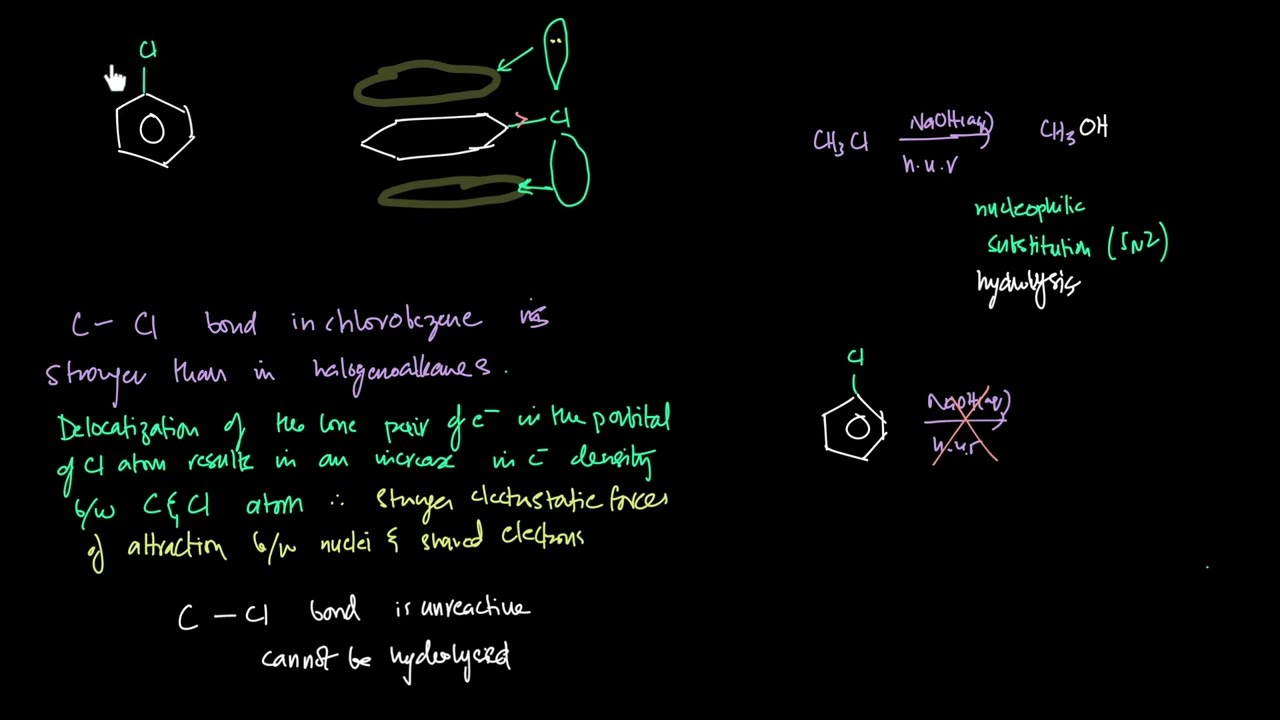 Cl
Cl
C – Cl bond in chlorobezene is
stronger than in halogenoalkanes.
Delocatization of the lone pair of e⁻ in the p orbital
of Cl atom results in an increase in e⁻ density
b/w C & Cl atom ∴ stronger electrostatic forces
of attraction b/w nuclei & shared electrons
C – Cl bond is unreactive
cannot be hydrolysed
CH₃Cl NaOH(aq) CH₃OH
h.u.r
nucleophilic
substitution (SN2)
hydrolysis
Cl
NaOH(aq)
h.u.r